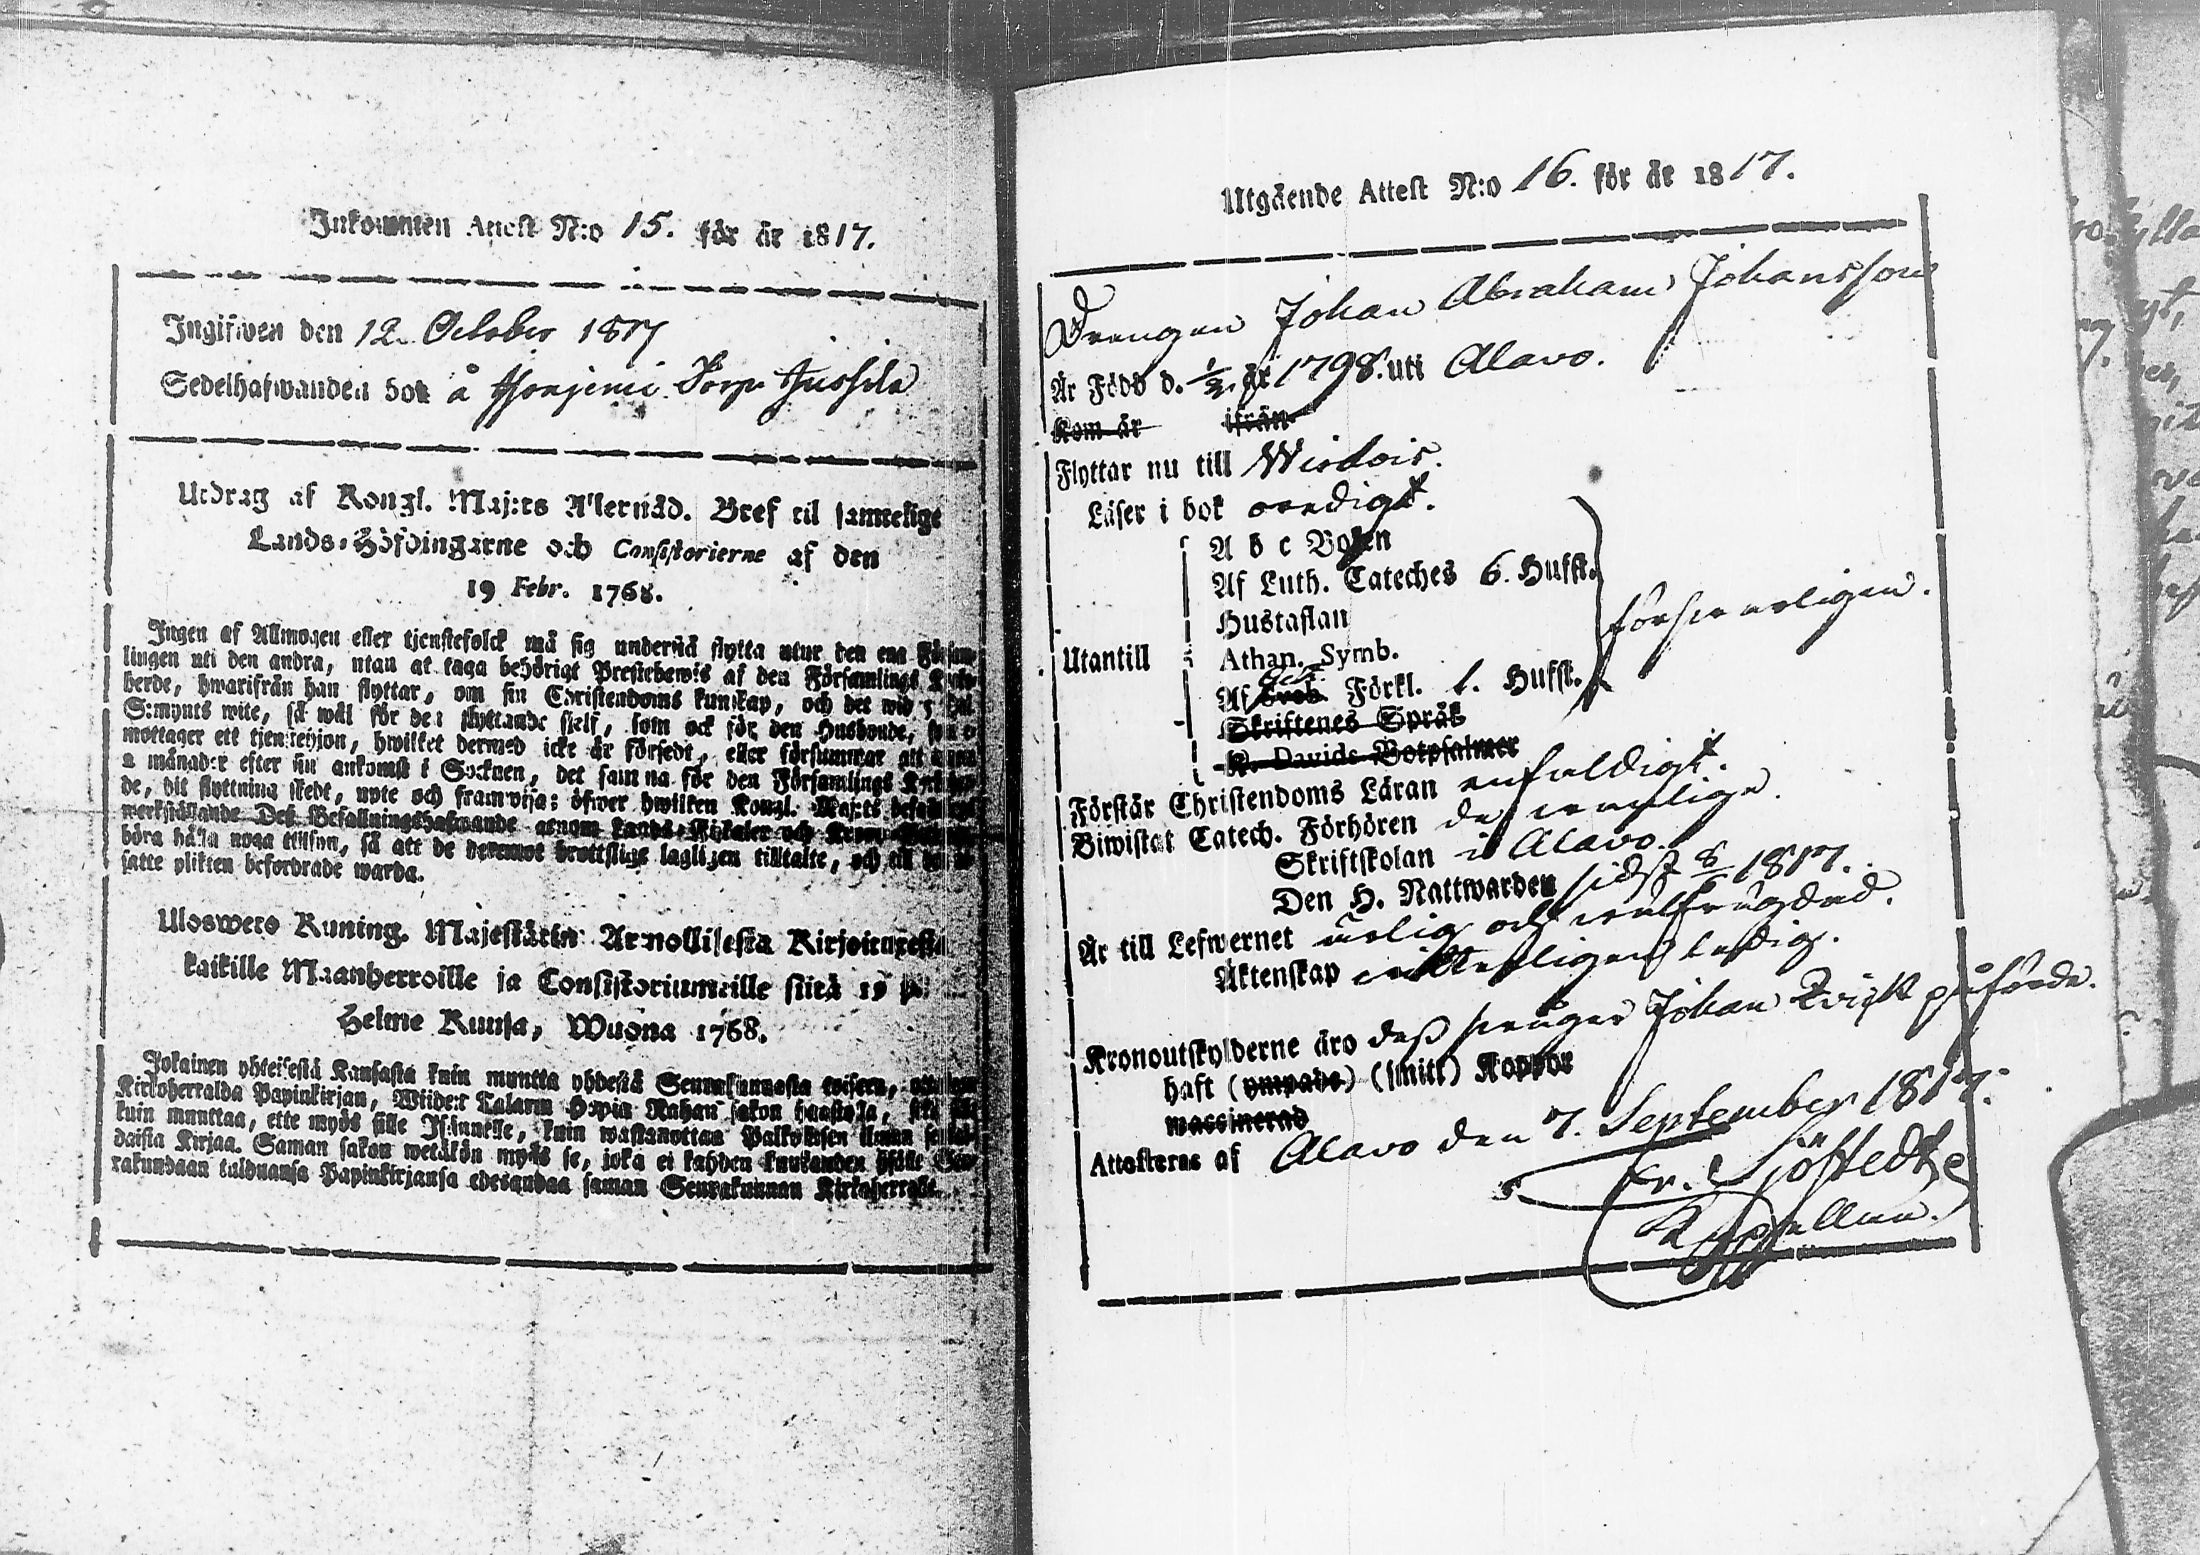 Inkommen Attest N:o 15. för år 1817.
Ingifwen den 12 October 1817
Sedelhafwanden bok å Torp Jussila
Utdrag af Kongl. Maj:ts Allernåd. Bref til samtelige
Lands-Höfdingarne och Consistorierne af den
19 Febr. 1768.
Ingen af Allmogen eller tjenstefolck må sig understå flytta utur den ena Försam-
lingen uti den andra, utan at taga behörigt Prestebewis af den Församlings Kyrko-
herde, hwarifrån han flyttar, om sin Christendoms kunskap, och det wid 5 Dal.
S:mynts wite, så wäl för den flyttande sjelf, som ock för den Husbonde, som
mottager ett tjenstehjon, hwilket dermed icke är försedt, eller försummar att
2 månader efter sin ankomst i Socknen, det samma för den Församlings Kyrkoher-
de, dit flyttning skedt, upte och framwisa; öfwer hwilken Kongl. Maj:ts
werkställande Des Befallningshafwande genom Lands-Fiskaler och
böra hålla noga tillsyn, så att de deremot brottslige lagligen tilltalte, och till
satte plikten befordrade warda.
Ulosweto Kuning. Majestätin Armollisesta Kirjoituxesta
kaikille Maanherroille ja Consistoriumeille siitä 19 p:
Helme Kuusa, Wuona 1768.
Jokainen yhteisestä Kansasta kuin muutta yhdestä Seurakunnasta toiseen,
Kirkoherralda Papinkirjan, Wiiden Talarin Hopia Rahan sakon haastolla,
kuin muuttaa, ette myös sille Isännelle, kuin wastanottaa Palkolisen ilman
daista Kirjaa. Saman sakon wetäkön myös se, joka ei kahden kuukauden sisälle Seu-
rakundaan tulduansa Papinkirjansa edesandaa saman Seurakunnan Kirkoherralle.
Utgående Attest N:o 16. för år 1817.
Drengen Johan Abraham Johansson
Är Född d. 1/2. år 1798. uti Alavo.
Kom år ifrån
Flyttar nu till Wirdois.
Läser i bok ordigt.
A b c Boken
Af Luth. Cateches 6. Hufst.
Hustaflan
Utantill
Athan. Symb.
Af Sveb. Förkl. 1. Hufst.
försvarligen.
Skriftenes Språk
K. Davids Botpsalmer
Förstår Christendoms Läran enfaldigt.
Biwistat Catech. Förhören
Skriftskolan i Alavo.
Den H. Nattwarden sidst 8/ 1817.
Är till Lefwernet ärlig och
Äktenskap ledig.
Kronoutskylderne äro deß pengar Johan påförde.
haft (ympade) (smitt) Koppor
waccinerad
Attesteras af Alavo den 7. September 1817.
Er. Sjöstedt
Kapellan.